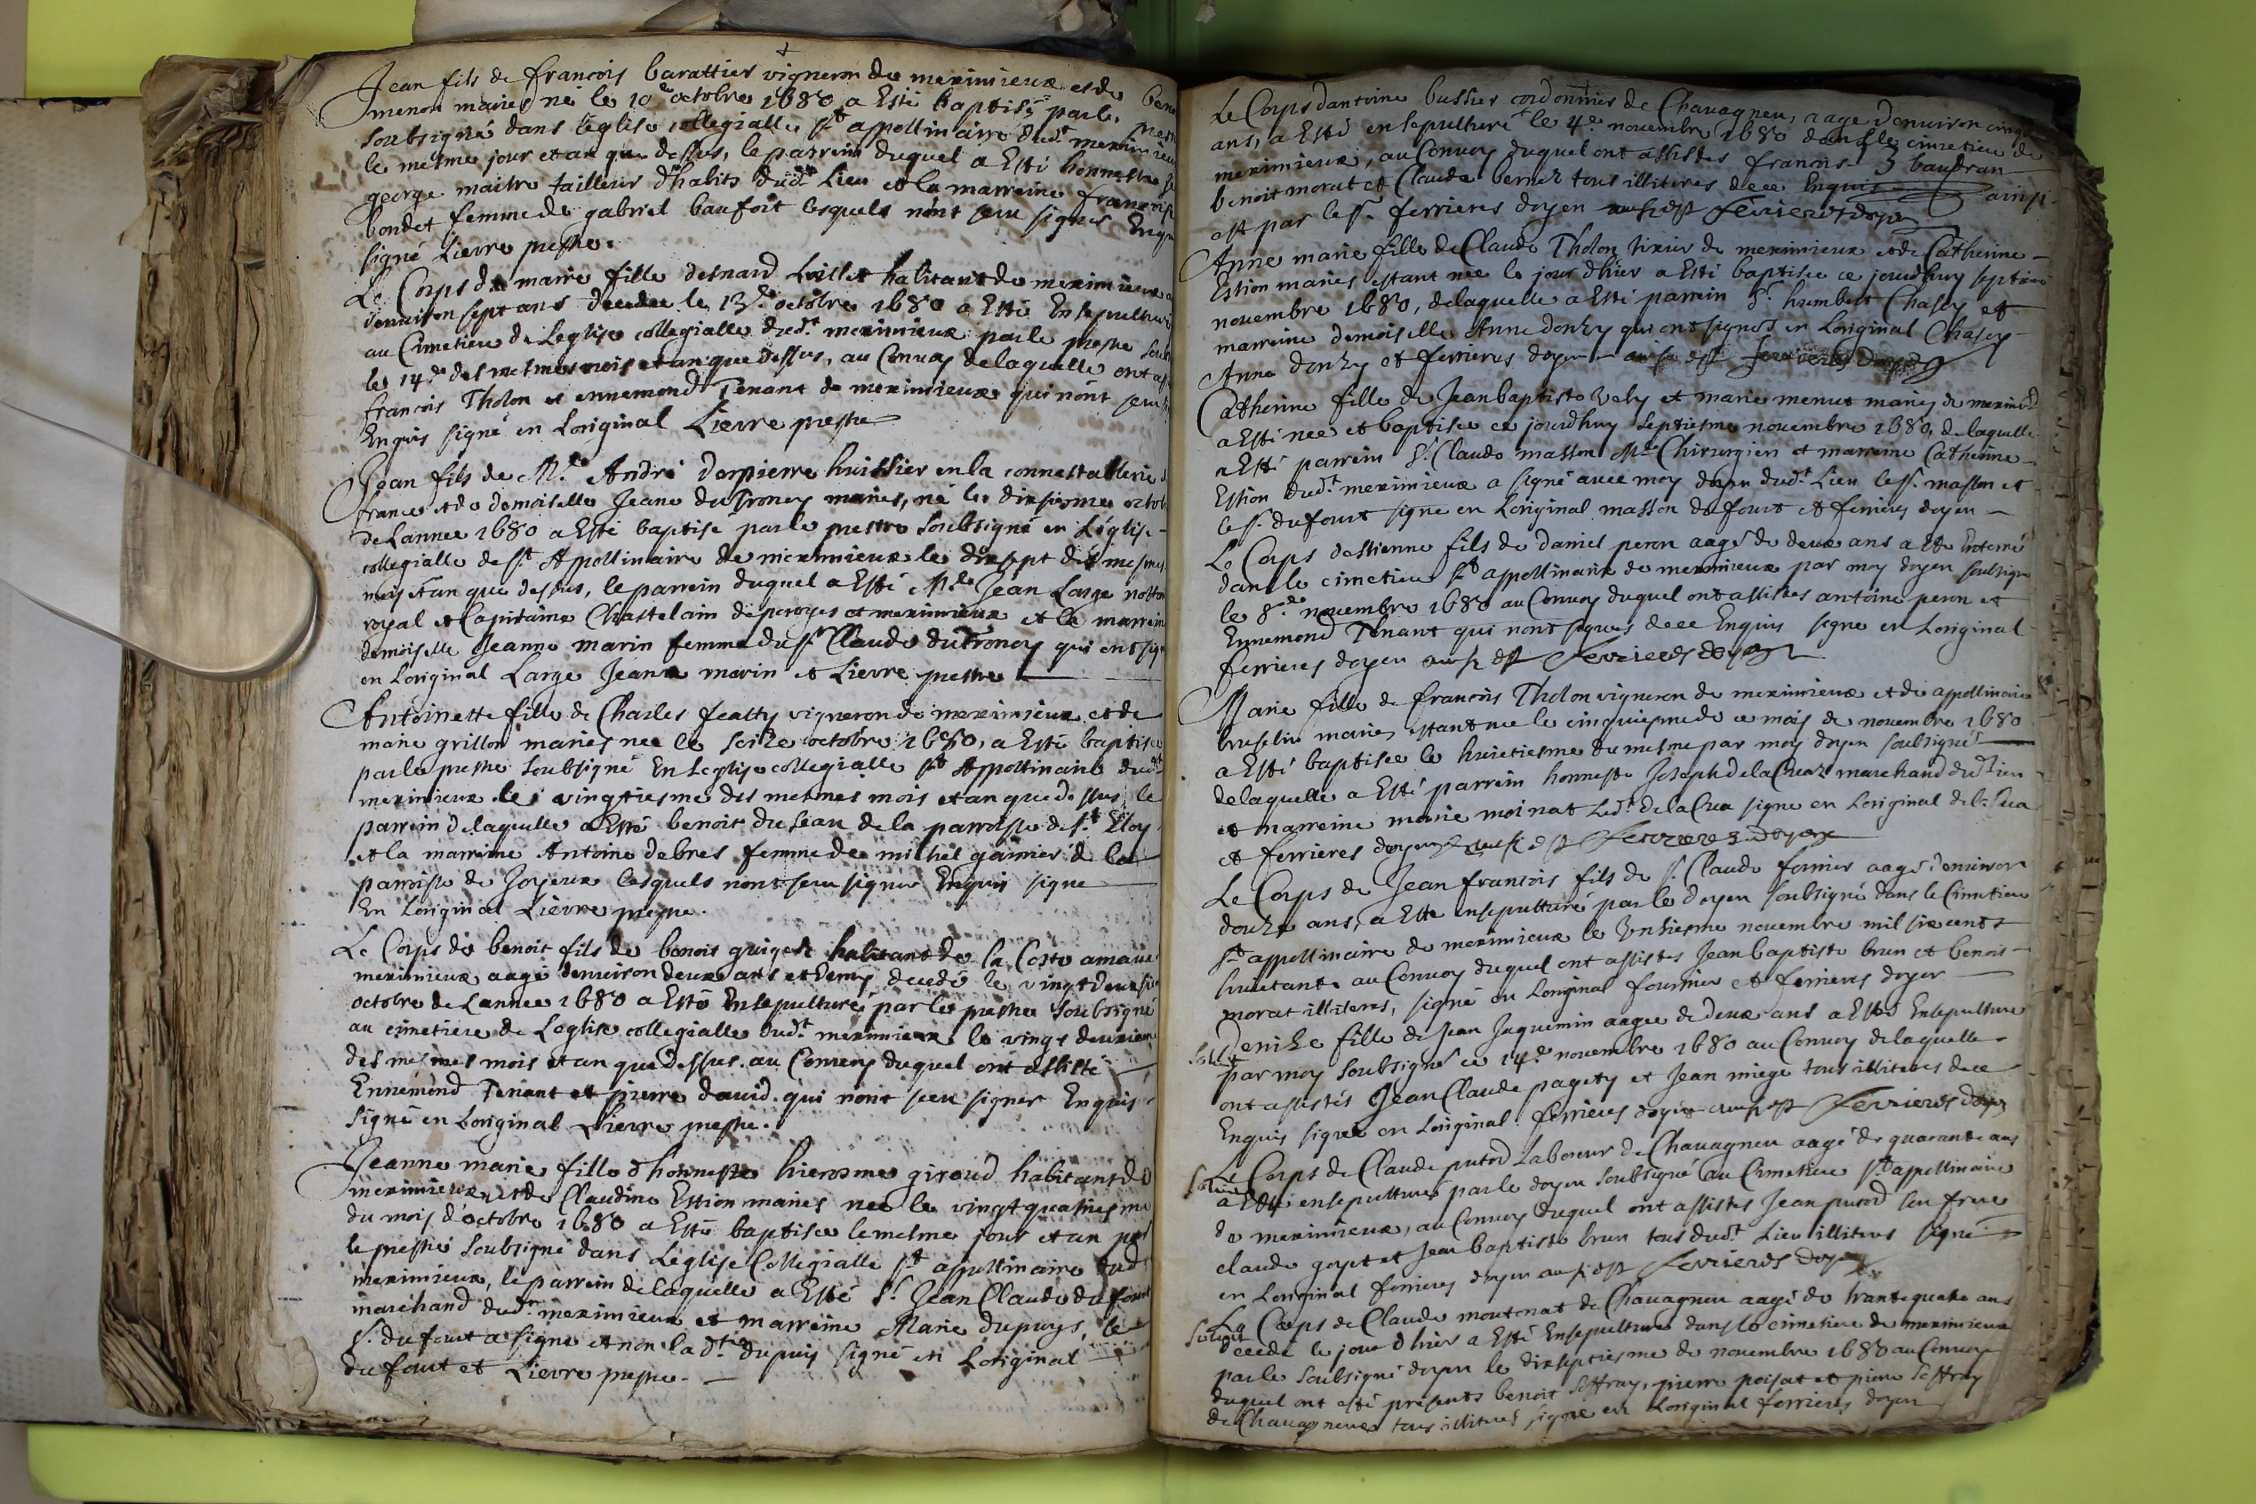 Jean fils de françois barattier vigneron de meximieux et de
menon mariés né le 10e octobre 1680 a Esté baptisé par le
soubsigné dans l'église collegialle st appollinaire dudt meximieux
le mesme jour et an que dessus, le parrein duquel a Esté honneste
george maitre tailleur d'habits dudt Lieu et la marreine françoise
bondet femme de gabriel baufort lesquels n'ont sceu signer Enquis
signé Lievre prestre.
Le Corps de marie fille de habitant de meximieux
d'environ sept ans decedee le 13e octobre 1680 a Esté Ensepulturé
au Cimetiere de Leglise collegialle dudt meximieux par le prestre
le 14e des mesmes mois et an que dessus, au Convoy de laquelle ont
françois Tholon et ennemond Tenant de meximieux qui n'ont sceu
Enquis signé en Loriginal Lievre prestre
Jean fils de Mre André Despierre huissier en la connestablerie de
france et de demoiselle Jeane duTroncy mariés, né le dixsiesme octobre
de Lannee 1680 a Esté baptisé par le prestre soubsigné en L'église
collegialle de st Appollinaire de meximieux le dixsept des mesmes
mois et an que dessus, le parrein duquel a Esté Mre Jean Large nottaire
royal et Capitaine Chastelain de perouges et meximieux et la marreine
demoiselle Jeanne marin femme du sr Claude duTroncy qui ont signé
en Loriginal Large Jeanne marin et Lievre prestre
Antoinette fille de Charles featty vigneron de meximieux et de
marie grillon mariés nee le seize octobre 1680, a Esté baptisee
par le prestre soubsigné En Leglise collegialle st Appollinaire dudt
meximieux le vingtiesme des mesmes mois et an que dessus, le
parrein delaquelle a Esté benoit duseau de la parroisse de st Eloy
et la marreine Antoine debres femme de michel garnier de la
parroisse de Joyeux lesquels n'ont sceu signer Enquis signé
En Loriginal Lievre prestre.
Le Corps de benoit fils de benoit guiget habitant de la Coste
meximieux aagé denviron deux ans et demy decedé le vingtdeux
octobre de Lannee 1680 a Esté Ensepulturé par le prestre soubsigné
au cimetiere de Leglise collegialle dudt meximieux le vingt
des mesmes mois et an que dessus. au Convoy duquel ont assisté
Ennemond Tenant et pierre david qui n'ont sceu signer Enquis
signé en Loriginal Lievre prestre.
Jeanne marie fille d'honneste hierosme giroud habitant de
meximieux et de Claudine Estion mariés nee le vingtquatriesme
du mois d'octobre 1680 a Esté baptisee le mesme jour et an par
le prestre soubsigné dans L'église Collegialle st appollinaire dudt
meximieux, le parrein delaquelle a Esté sr Jean Claude dufourt
marchand dudt meximieux et marreine Marie dupuys, le
sr dufourt a signé et non la dte dupuis signé en Loriginal
dufourt et Lievre prestre.
Le Corps dantoine bussier cordonnier de Chavagneu, aage denviron cinq
ans, a Esté ensepulturé le 4e novembre 1680 dans le cimetiere de
meximieux, au Convoy duquel ont assistes françois baudran
benoit morat et Claude bernez tous illiteres de ce Enquis ainsi
est par le sr ferrieres doyen ainsi est ferrieres doyen
Anne marie fille de Claude Tholon tixier de meximieux et de Catherine
Estion mariés estant nee le jour d'hier a Esté baptisee ce jourdhuy septiesme
novembre 1680, delaquelle a Esté parrein sr humbert Chassy et
marreine demoiselle Anne donzy qui ont signés en Loriginal Chasey
Anne donzy et ferrieres doyen ainsi est ferrieres doyen
Catherine fille de Jean baptiste Vely et marie menut mariés de meximieux
a Esté nee et baptisee ce jourdhuy septiesme novembre 1680, de laquelle
a Esté parrein sr Claude masson Mre Chirurgien et marreine Catherine
Estion dudt meximieux a signé avec moy doyen dudt Lieu le sr masson et
le sr dufourt signé en Loriginal masson dufourt et ferrieres doyen
Le Corps destienne fils de daniel peron aagé de deux ans a Esté Enterré
dans le cimetiere st appollinaire de meximieux par moy doyen soubsigné
le 8e novembre 1680 au Convoy duquel ont assistes antoine peron et
Ennemond Tenant qui n'ont signés de ce Enquis signé en Loriginal
ferrieres doyen ainsi est ferrieres doyen
Marie fille de françois Tholon vigneron de meximieux et de appollinaire
bruselin mariés estant nee le cinquiesme de ce mois de novembre 1680
a Esté baptisee le huictiesme du mesme par moy doyen soubsigné
delaquelle a Esté parrein honneste Joseph de la Cua marchand dudt lieu
et marreine marie moinat Ledt de la Cua signé en Loriginal de la Cua
et ferrieres doyen ainsi est ferrieres doyen
Le Corps de Jean françois fils de sr Claude fornier aagé denviron
douze ans, a Esté ensepulturé par le doyen soubsigné dans le Cimetiere
st appollinaire de meximieux le Unziesme novembre mil six cents
huictante au Convoy duquel ont assistes Jean baptiste brun et benoit
morat illiteres, signé en Loriginal fournier et ferrieres doyen
Denize fille de Jean Jaquemin aagee de deux ans a Esté Ensepulturé
par moy soubsigné ce 14e novembre 1680 au Convoy delaquelle
ont assistés Jean Claude pagety et Jean miege tous illiteres de ce
Enquis signé en Loriginal ferrieres doyen ainsi est ferrieres doyen
Le Corps de Claude putod Laboreur de Chavagneu aagé de quarante ans
a Esté ensepulturé par le doyen soubsigné au Cimetiere st appollinaire
de meximieux, au Convoy duquel ont assistes Jean putod son frere
claude goyet et Jean baptiste brun tous dudt Lieu illiteres signé
en Loriginal ferrieres doyen ainsi est ferrieres doyen
Le Corps de Claude moutonat de Chavagneu aagé de trante quatre ans
decedé le jour d'hier a Esté Ensepulturé dans le cimetiere de meximieux
par le soubsigné doyen le dixseptiesme de novembre 1680 au Convoy
duquel ont esté présents benoit soffray, pierre poisat et pierre soffray
de Chavagneux tous illiteres signé en Loriginal ferrieres doyen